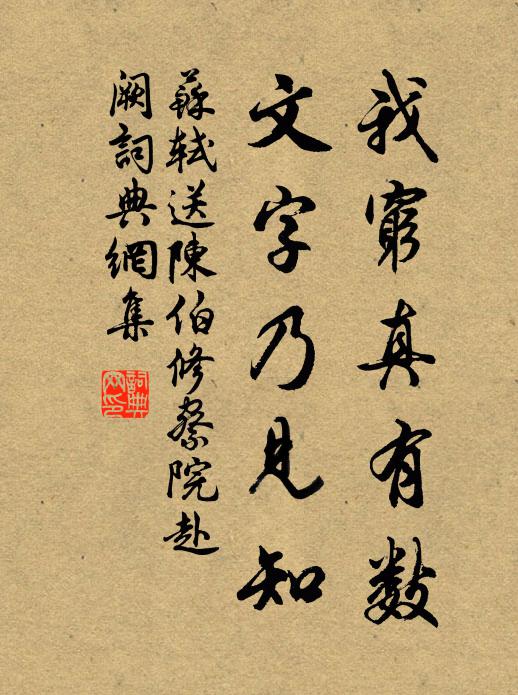 我窮真有數
文字乃見知
蘇軾送陳伯修察院赴
闕詞典網集
詞典
网印